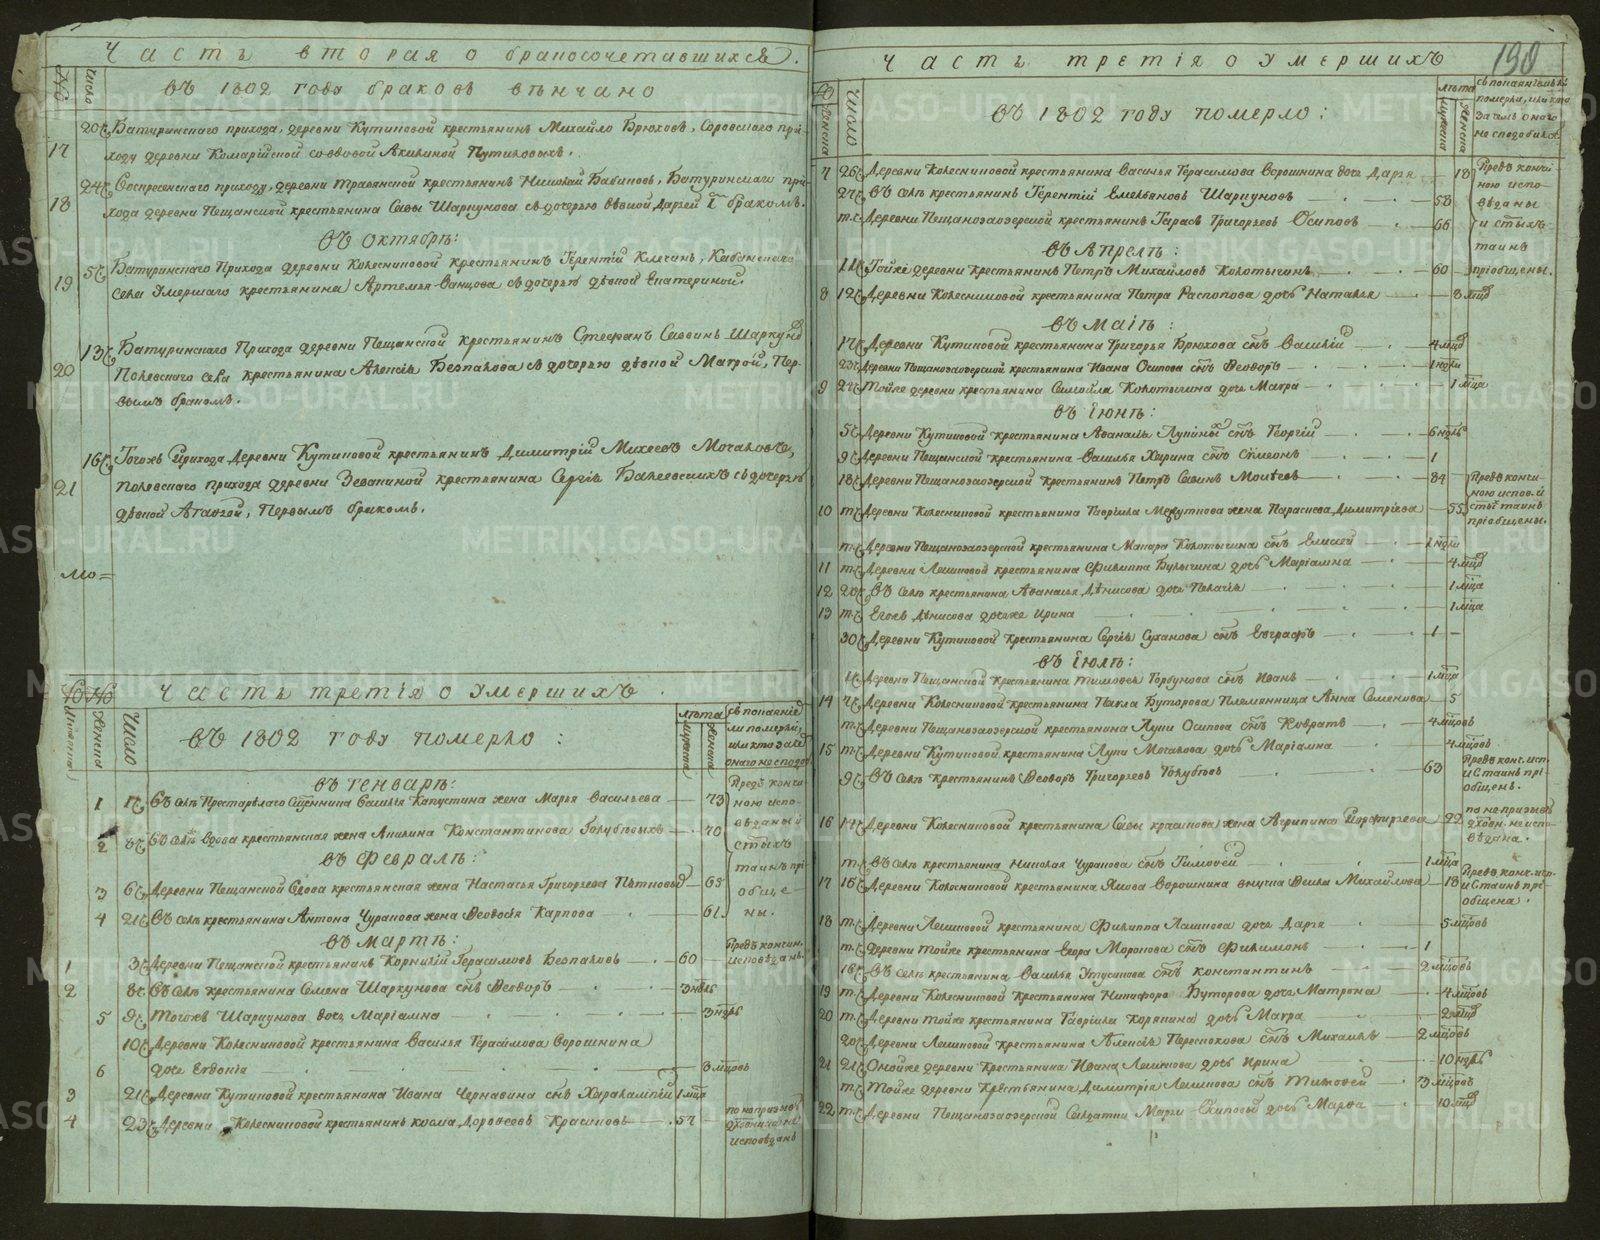 Часть вторая о бракосочетавшихся.
№ Число Въ 1802 году браковъ вѣнчано
17 20г Батуринскаго прихода, деревни Кутиковой крестьянинъ Михайло Брюховъ, Соровскаго при-
ходу деревни Комарійской со вдовой Акилиной Путиловыхъ.
18 24г Воспресенскаго приходу, деревни Травянской крестьянинъ Николай Бабиновъ, Батуринскаго при-
хода деревни Пещанской крестьянина Савы Шаркунова съ дочерью дѣвкой Дарьей I бракомъ.
Въ октябрѣ:
19 5г Батуринскаго Прихода деревни Колесниковой крестьянинъ Терентій Клевинъ, Кабанскаго
села умершаго крестьянина Артемья Ванцова съ дочерью дѣвкой Екатериной.
20 13г Батуринскаго Прихода деревни Пещанской крестьянинъ Стефанъ Саввинъ Шаркуновъ
Полевскаго села крестьянина Алексія Безпалова съ дочерью дѣвкой Маврой, Пер-
вымъ бракомъ.
21 16г Тогожъ Прихода Деревни Кутиковой крестьянинъ Димитрій Михеевъ Мочаловъ,
полевскаго прихода деревни Зеванкиной крестьянина Сергія Бакеевскихъ съ дочерью
дѣвкой Агафьей, Первымъ бракомъ.
мо=
Часть третія о умершихъ.
Въ 1802 году померло:
Число Лѣта
Въ генварѣ:
1 1г Въ селѣ Престарѣлаго Священника Василья Капустина жена Марья Васильева 73
2 8г Въ селѣ вдова крестьянская жена Акилина Константинова Голубцовыхъ 70
Въ Февралѣ:
3 6г Деревни Пещанской вдова крестьянская жена Настасья Григорьева Пятковыхъ 65
4 21г Въ селѣ крестьянина Антона Чуракова жена Феодосія Карпова 61
Предъ кончи-
ною испо-
вѣданы и
стыхъ
таинъ прі-
обще-
ны.
Въ Мартѣ:
1 3г Деревни Пещанской крестьянинъ Корнилій Герасимовъ Безпаловъ 60
Предъ кончин.
исповѣданъ.
2 8г Въ селѣ крестьянина Семена Шаркунова сынъ Феодоръ 3 ндль
5 9г Тогожъ Шаркунова дочь Маріамна 3 ндль
10г Деревни Колесниковой крестьянина Василья Герасимова Ворошнина
6 дочь Евдокія 3 мцовъ
3 21г Деревни Кутиковой крестьянина Ивана Чернавина сынъ Харалампій 1 мца
4 23г Деревни Колесниковой крестьянинъ козма Дорофеевъ Красиковъ 57
Часть третія о умершихъ
190
Женска Число Въ 1802 году померло: Лѣта Мужеска Женска
7 26г Деревни Колесниковой крестьянина Василья Герасимова Ворошнина дочь Дарья 18
27г Въ селѣ крестьянинъ Терентій Емельяновъ Шаркуновъ 58
т.г Деревни Пещанозаозерской крестьянинъ Тарасъ Григорьевъ Осиповъ 66
Предъ кончи-
ною испо-
вѣданы
и стыхъ
таинъ
пріобщены.
Въ Апрелѣ:
11г Тойже деревни крестьянинъ Петръ Михайловъ Колотыгинъ 60
8 12г Деревни Колесниковой крестьянина Петра Распопова дочь Наталья 8 мцъ
Въ Маіѣ:
17г Деревни Кутиковой крестьянина Григорья Брюхова сынъ Василій 4 мцъ
23г Деревни Пещанозаозерской крестьянина Ивана Осипова сынъ Феодоръ 1 ндли
9 27г Тойже деревни крестьянина Самойла Колотыгина дочь Мавра 1 мца
Въ Іюнѣ:
5г Деревни Кутиковой крестьянина Афанасія Лупина сынъ Георгій 6 ндль
9г Деревни Пещанской крестьянина Василья Харина сынъ Симеонъ 1
18г Деревни Пещанозаозерской крестьянинъ Петръ Савинъ Мосѣевъ 84
10 т.г Деревни Колесниковой крестьянина Гавріила жена Парасковья Димитріева 55
Предъ кончи-
ною испов. и
стыхъ таинъ
пріобщены.
т.г Деревни Пещанозаозерской крестьянина Макара Колотыгина сынъ Елисей 1 ндли
11 т.г Деревни Лешаковой крестьянина Филиппа Булыгина дочь Маріамна 4 мцъ
12 20г Въ селѣ крестьянина Афанасья Денисова дочь Пелагія 1 мца
13 т.г Егожъ Денисова дочьже Ирина 1 мца
30г Деревни Кутиковой крестьянина Сергія Суханова сынъ Евграфъ 1
Въ Іюлѣ:
4г Деревни Пещанской крестьянина Тимофея Горбунова сынъ Иванъ 1 мца
14 7г Деревни Колесниковой крестьянина Павла Буторова Племянница Анна Семенова 5
т.г Деревни Пещанозаозерской крестьянина Луки Осипова сынъ Кодратъ 4 мцовъ
15 т.г Деревни Кутиковой крестьянина Луки Мочалова дочь Маріамна 4 мцовъ
9г Въ селѣ крестьянинъ Феодоръ Григорьевъ Голубцовъ 63
Предъ конч. исп.
и С таинъ прі-
общенъ.
16 14г Деревни Колесниковой крестьянина Савы красикова жена Агрипина Порфирьева 22
т.г Въ селѣ крестьянина Николая Чуракова сынъ Тимофей 1 мца
17 15г Деревни Колесниковой крестьянина Якова Ворошнина внучка Фекла Михайлова 18
Предъ конч. исп.
и С таинъ прі-
общена.
18 т.г Деревни Лешаковой крестьянина Филиппа Лешакова дочь Дарья 5 мцовъ
т.г Деревни тойже крестьянина Егора Моронова сынъ Филимонъ 1
16г Въ селѣ крестьянина Василья Утусикова сынъ константинъ 2 мцовъ
19 т.г Деревни Колесниковой крестьянина Никифора Буторова дочь Матрона 4 мцовъ
20 т.г Деревни тойже крестьянина Гавріила Корякина дочь Мавра 2 мцъ
20г Деревни Лешаковой крестьянина Алексія Переснокова сынъ Михаилъ 2 мцовъ
21 21г Онойже деревни Крестьянина Ивана Лешакова дочь Ирина 10 ндль
т.г Тойже деревни Крестьянина Димитрія Лешакова сынъ Тимофей 3 мцовъ
22 т.г Деревни Пещанозаозерской Солдатки Марьи Осиповой дочь Марфа 10 мцъ
METRIKI.GASO-URAL.RU